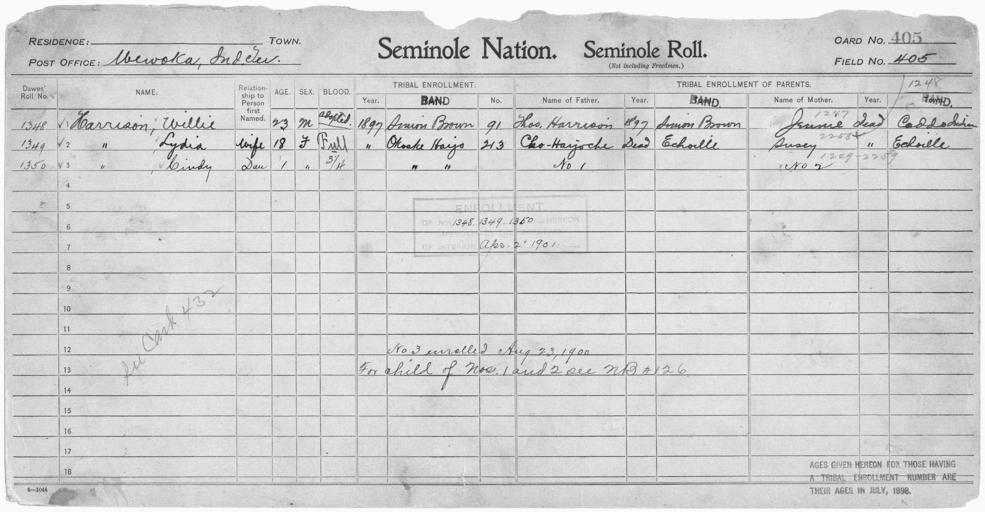 RESIDENCE: TOWN. Seminole Nation. Seminole Roll. CARD NO. 405
POST OFFICE: Wewoka, Ind Ter. (Not including Freedmen.) FIELD NO. 405
Dawes' Roll No. NAME. Relationship to Person first Named. AGE. SEX. BLOOD. TRIBAL ENROLLMENT. TRIBAL ENROLLMENT OF PARENTS. 1248
Year. BAND No. Name of Father. Year. BAND. Name of Mother. Year. BAND.
1287
1348 1 Harrison, Willie 23 M adopted 1897 Simon Brown 91 Thos. Harrison 1897 Simon Brown Jennie Dead Caddo Indian
1349 2 " Lydia Wife 18 F Full " Okoske Harjo 213 Cho-Harjoche Dead Echoille Susey " Echoille
1350 3 " Cindy Dau 1 " 3/4 " " No 1 No 2
4
5
ENROLLMENT
6 OF NOS. 1348. 1349. 1350 HEREON
7 OF INTERIOR Apr. 2" 1901
8
9
10
See Card 432
11
12 No 3 enrolled Aug 23, 1900
13 For child of Nos. 1 and 2 see NB #126.
14
15
16
17
AGES GIVEN HEREON FOR THOSE HAVING
18 A TRIBAL ENROLLMENT NUMBER ARE
6-1044 THEIR AGES IN JULY, 1898.